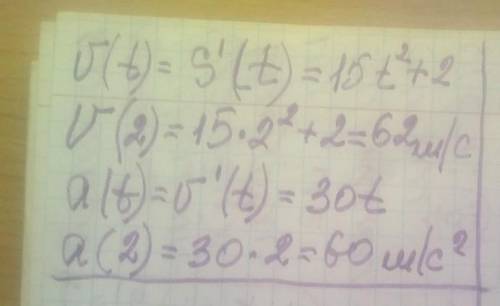 v(t) = S'(t) = 15t²+2
v(2) = 15·2²+2=62м/с
a(t)=v'(t) = 30t
a(2) = 30·2=60м/с²